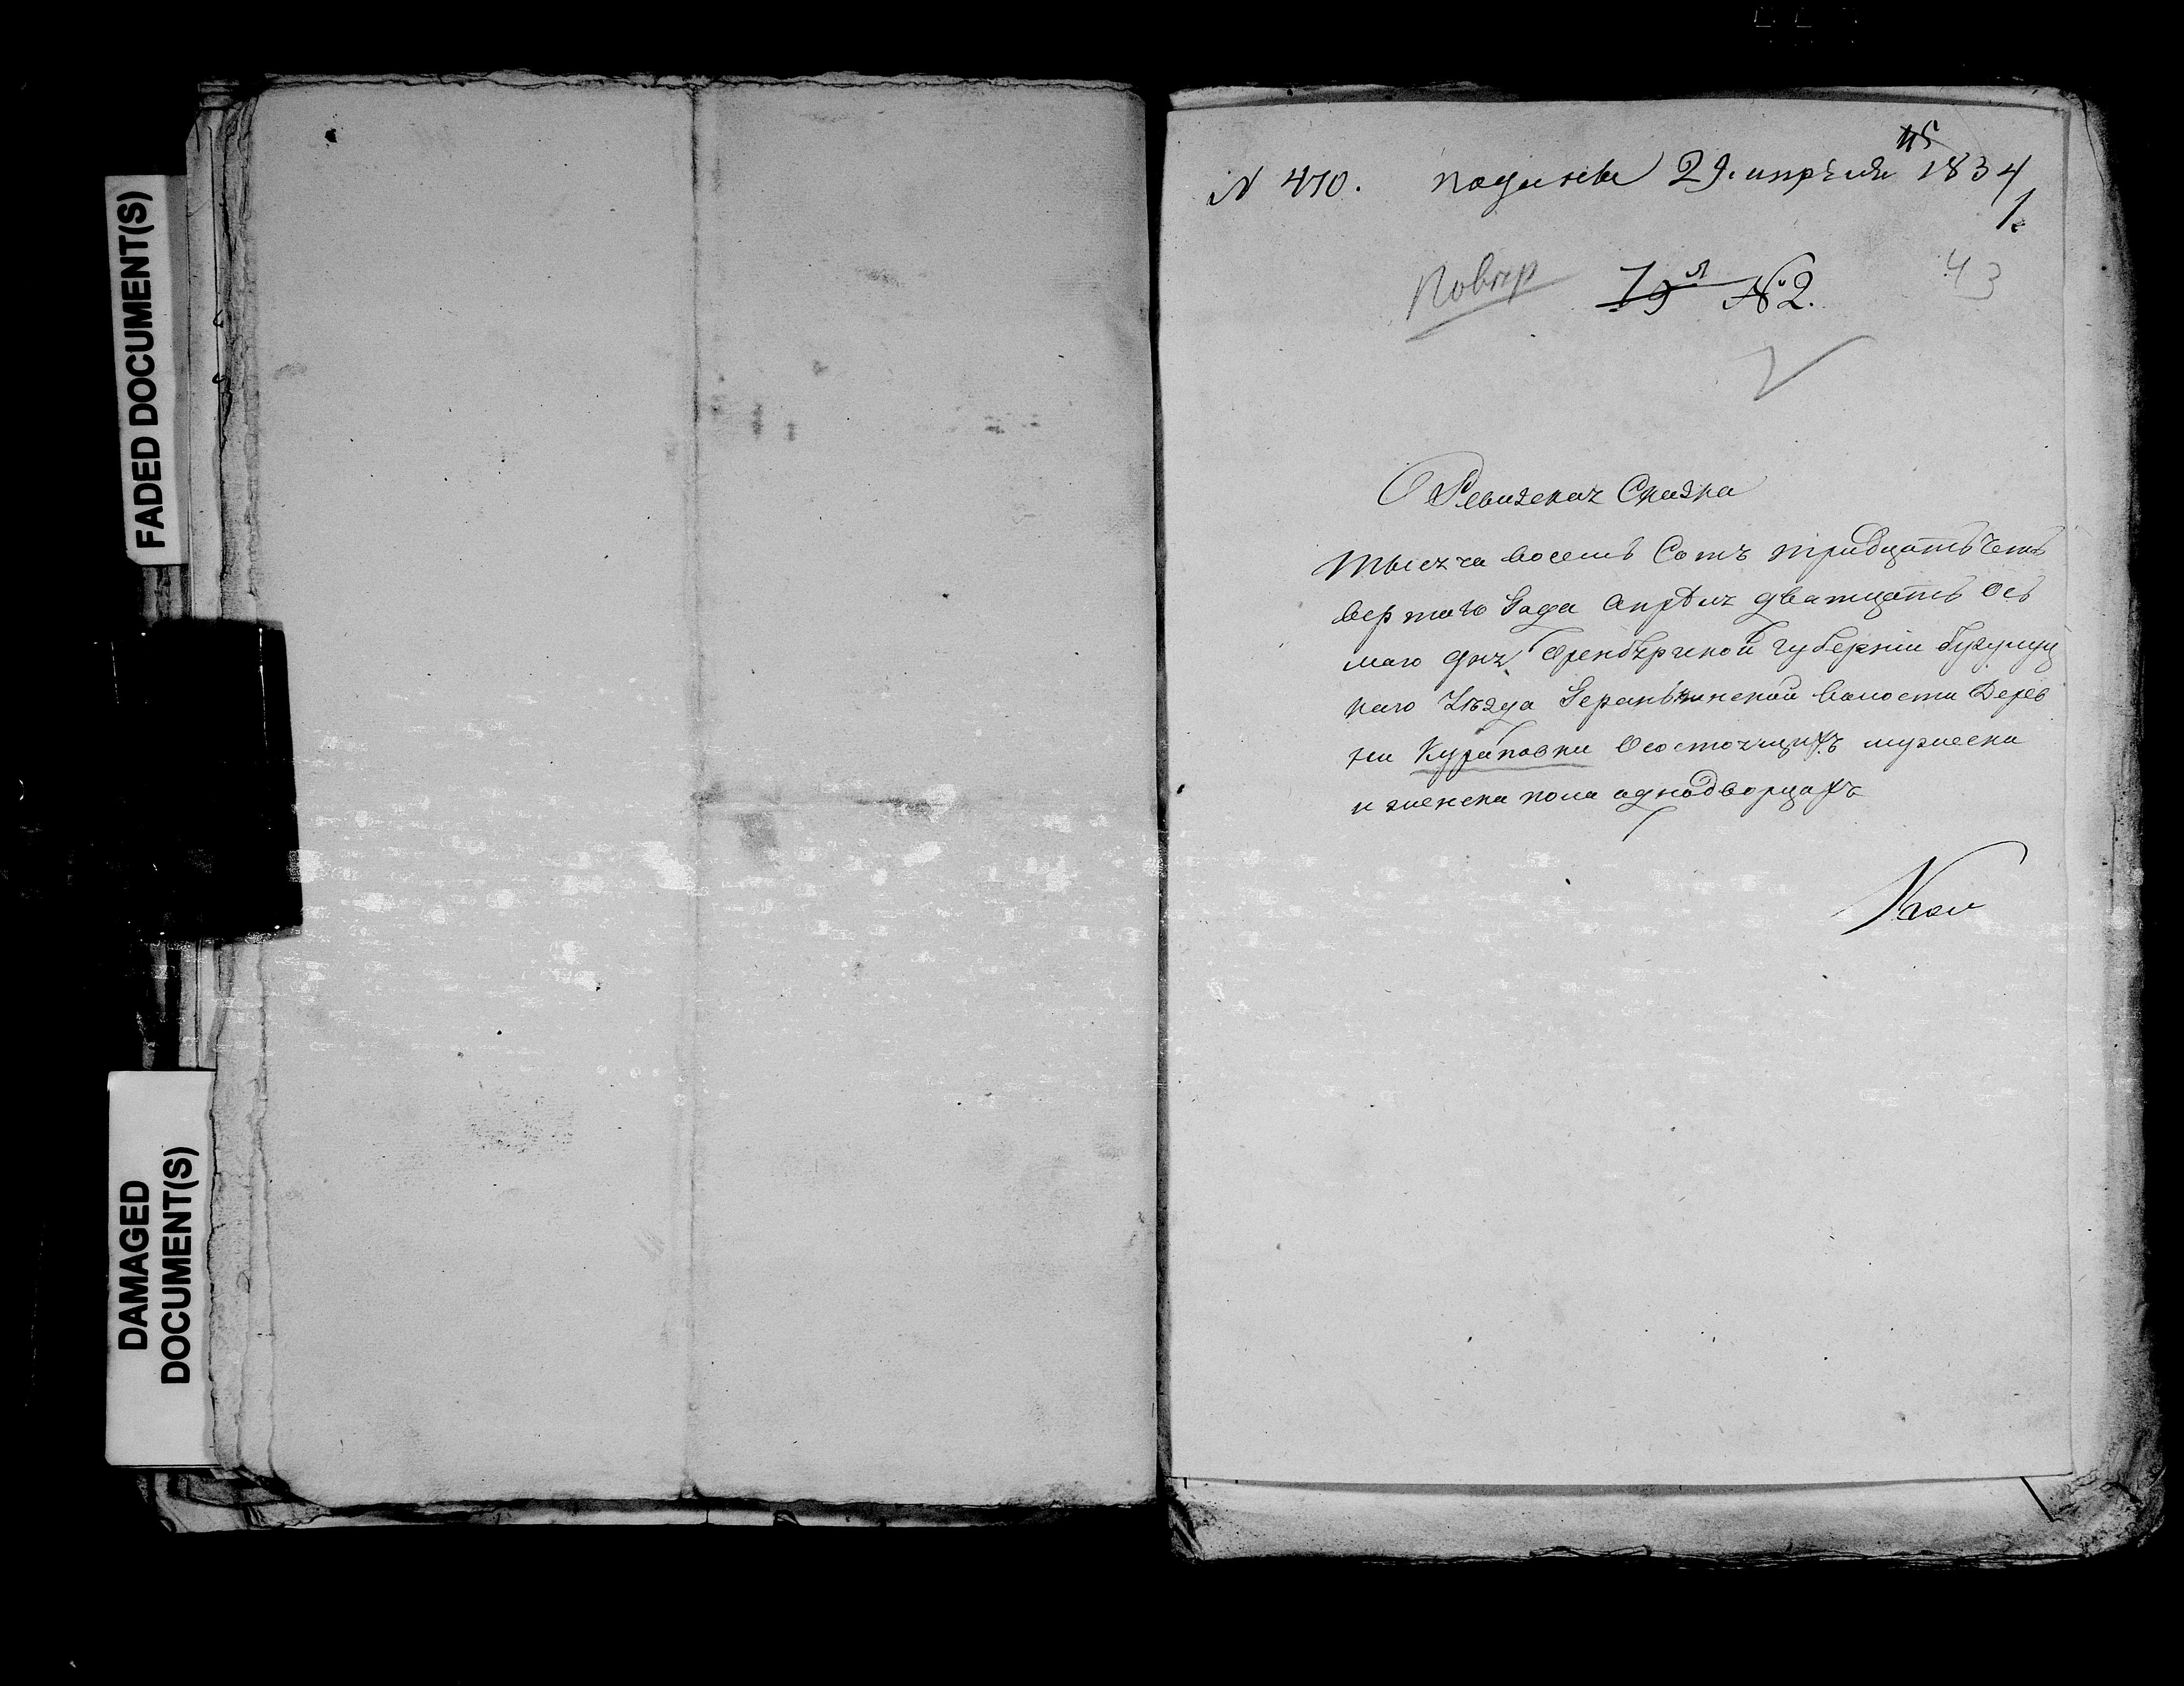 FADED DOCUMENT(S)
DAMAGED
DOCUMENT(S)
115
N 470. поданы 29. апрѣля 1834
1.
Повѣр 19 л №2. 43
Ревизская Сказка
Тысяча восемь Сотъ тридцать чет
вертаго Года Апрѣля дватцать ось
маго дня Оренбургской губерніи бугульм
каго Уѣзда волости Дерев
ни Кураповки Осостоящихъ мужеска
и женска пола аднодворцахъ